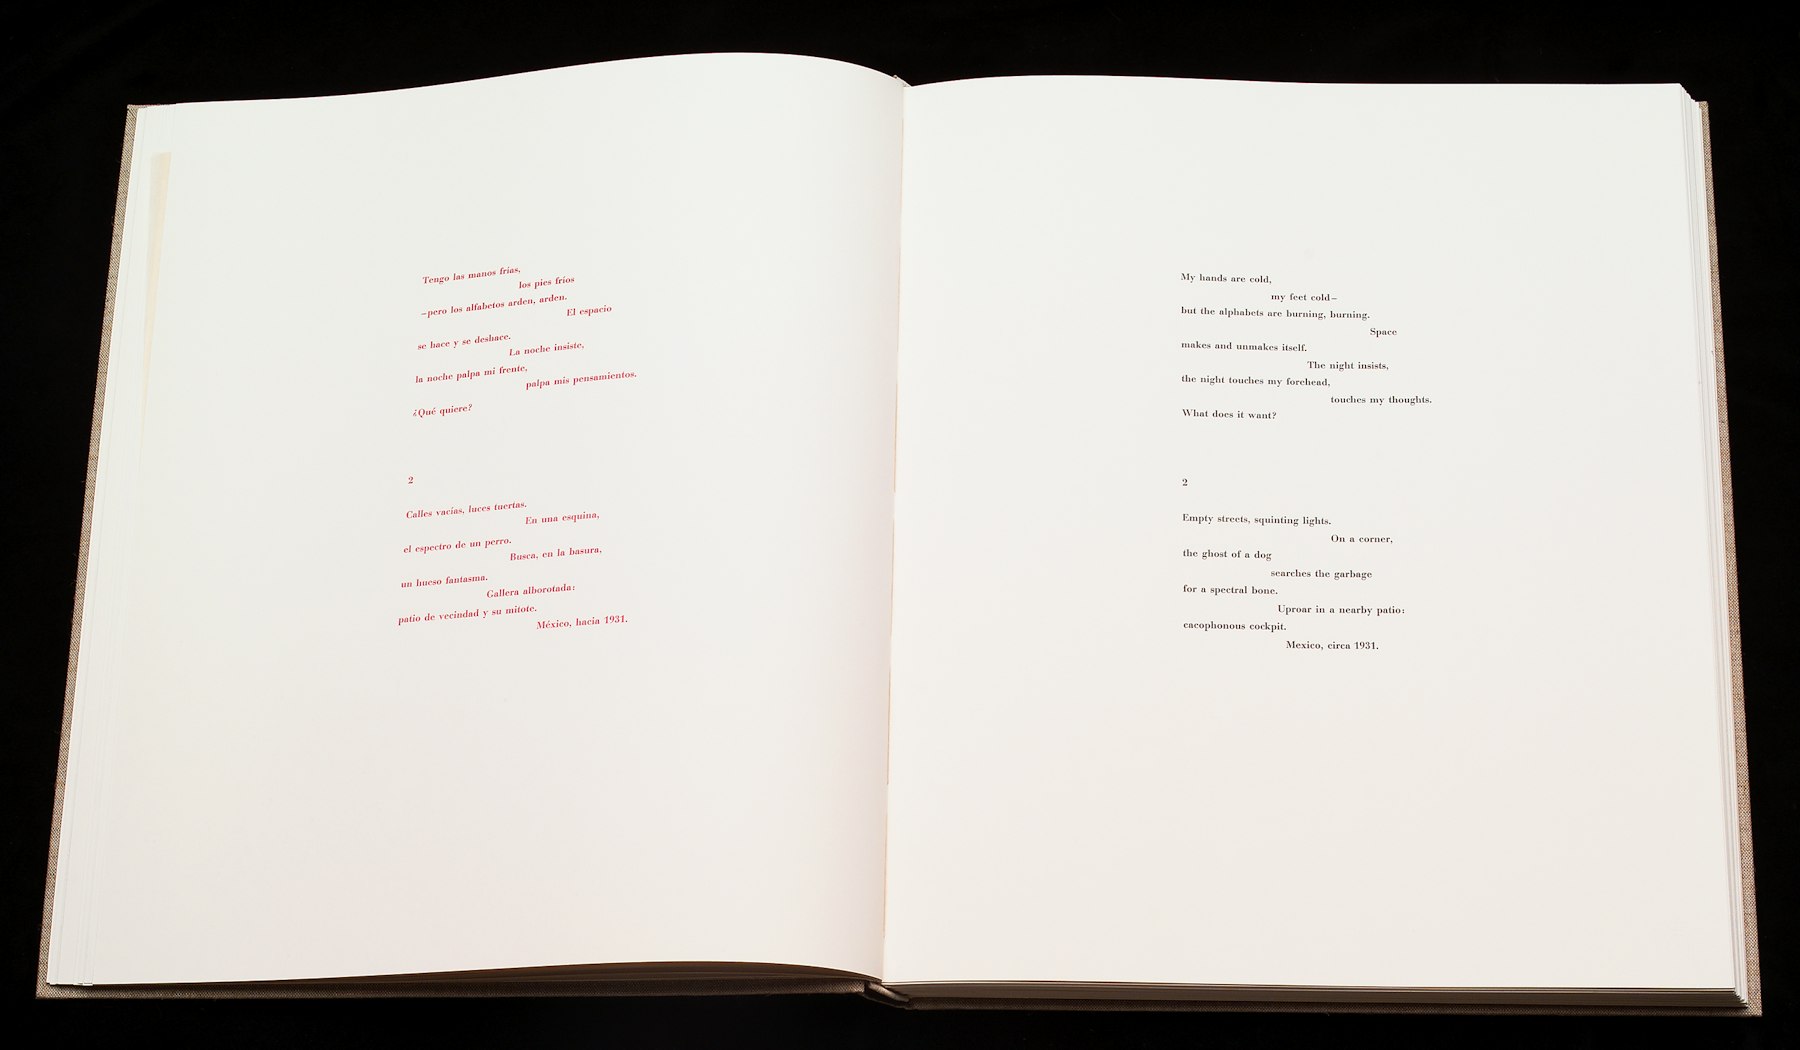 Tengo las manos frías,
los pies fríos
–pero los alfabetos arden, arden.
El espacio
se hace y se deshace.
La noche insiste,
la noche palpa mi frente,
palpa mis pensamientos.
¿Qué quiere?
2
Calles vacías, luces tuertas.
En una esquina,
el espectro de un perro.
Busca, en la basura,
un hueso fantasma.
Gallera alborotada:
patio de vecindad y su mitote.
México, hacia 1931.
My hands are cold,
my feet cold–
but the alphabets are burning, burning.
Space
makes and unmakes itself.
The night insists,
the night touches my forehead,
touches my thoughts.
What does it want?
2
Empty streets, squinting lights.
On a corner,
the ghost of a dog
searches the garbage
for a spectral bone.
Uproar in a nearby patio:
cacophonous cockpit.
Mexico, circa 1931.